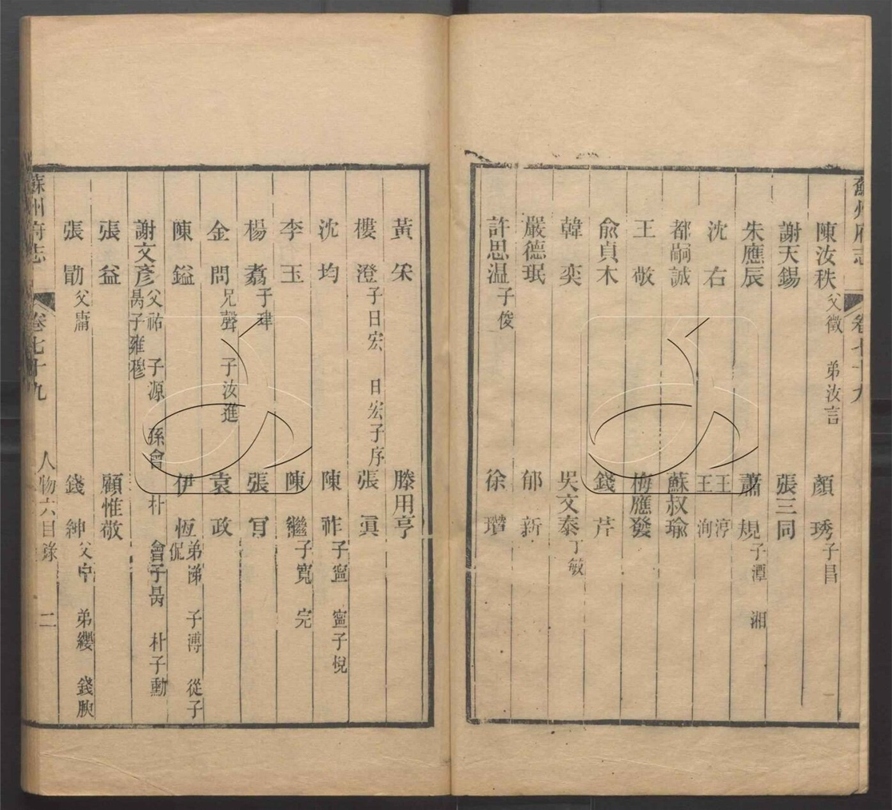 蘇州府志 卷七十九
陳汝秩 父徵 弟汝言 顏琇 子昌
謝天錫 張三同
朱應辰 蕭規 子潭 湘
沈右 王淳 王洵
都嗣誠 蘇叔瑜
王敬 梅應發
俞貞木 錢芹
韓奕 吳文泰 丁敏
嚴德珉 郁新
許思溫 子俊 徐瓚
黃 滕用亨
樓澄 子日宏 日宏子序 張眞
沈均 陳祚 子寧 寧子棿
李玉 陳繼 子寬 完
楊翥 子珒 張冔
金問 兄聲 子汝進 袁政
陳鎰 伊恆 弟濢 子溥 從子侃
謝文彥 父祐 子源 孫曾 朴 曾子昺 朴子勳 昺子雍 穆
張益 顧惟敬
張勖 父庸 錢紳 父 弟纓 錢腴
蘇州府志 卷七十九 人物六目錄 二